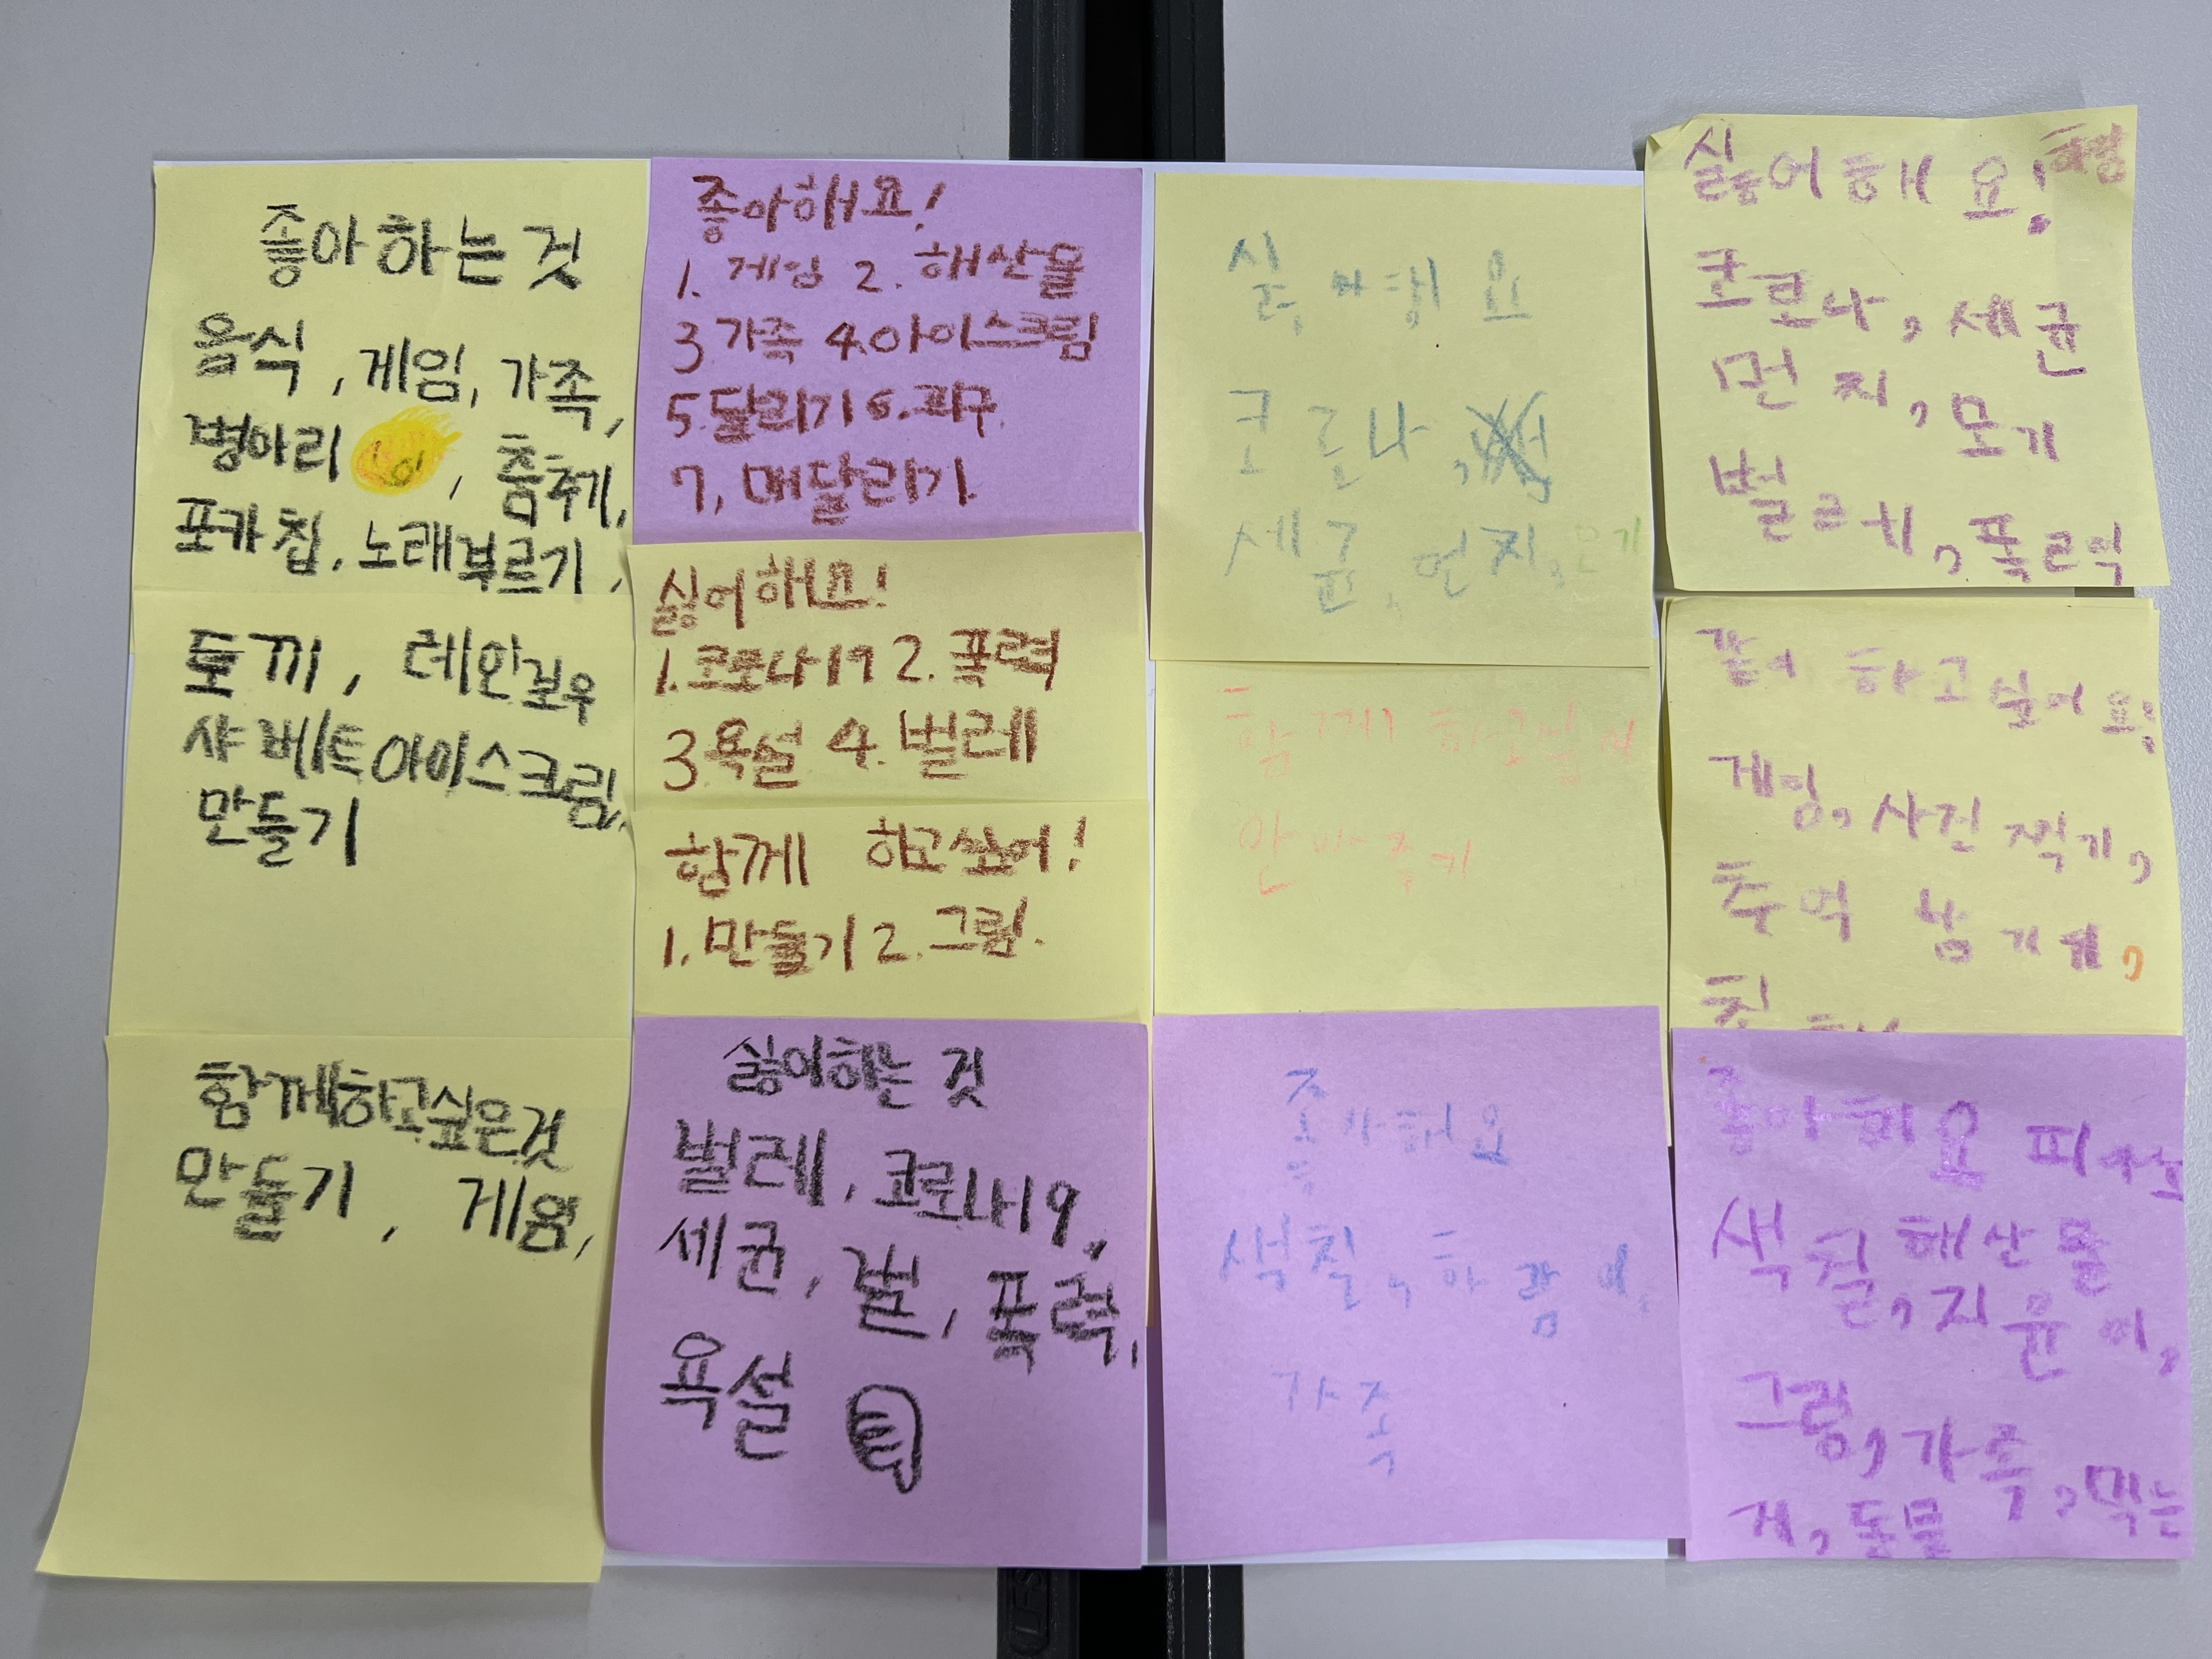 좋아하는 것
음식, 게임, 가족,
병아리, 춤추기,
포카칩, 노래부르기,
토끼, 레인보우
샤베트아이스크림,
만들기
함께하고싶은것
만들기, 게임,
좋아해요!
1. 게임 2. 해산물
3. 가족 4. 아이스크림
5. 달리기 6. 피구
7, 매달리기
싫어해요!
1. 코로나19 2. 폭력
3. 욕설 4. 벌레
함께 하고싶어!
1. 만들기 2. 그림.
싫어하는 것
벌레, 코로나19,
세균, 벌, 폭력,
욕설
코로나,
세균, 먼지, 모기
함께 하고
안마
좋아해요
색칠, 하람이,
가족,
싫어해요!
코로나, 세균
먼지, 모기
벌르레, 폭르력
하고 싶어요!
게임, 사진 찍기,
추억
좋아해요
색칠, 해산물
지윤이,
그림, 가족, 먹는
게, 동물